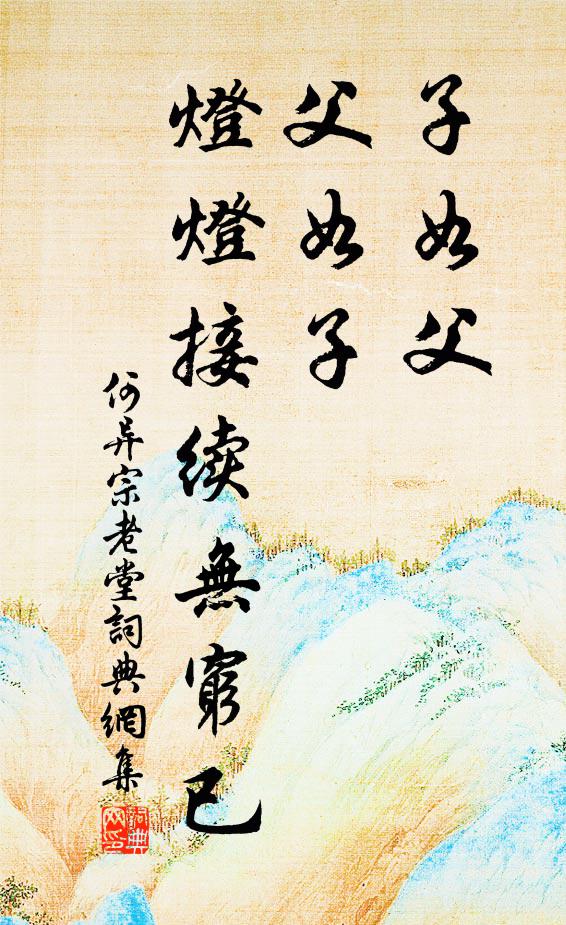 子如父
父如子
燈燈接續無窮已
何异宗老堂詞典網集
詞典網印